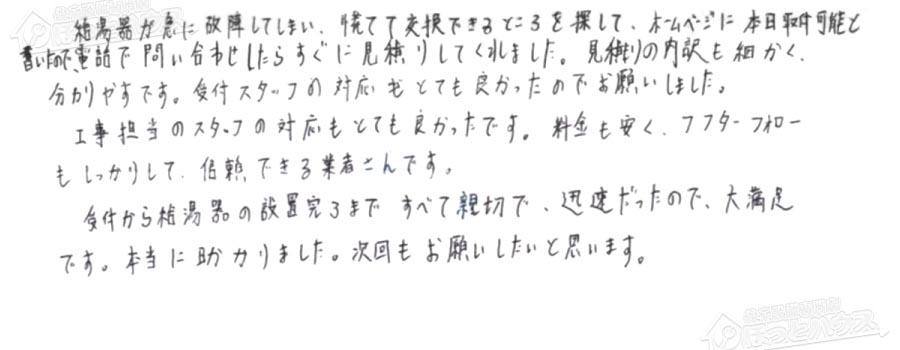 給湯器が急に故障してしまい、慌てて交換できるところを探して、ホームページに本日取付可能と
書いたので、電話で問い合わせしたらすぐに見積りしてくれました。見積りの内訳も細かく、
分かりやすです。受付スタッフの対応もとても良かったのでお願いしました。
工事担当のスタッフの対応もとても良かったです。料金も安く、アフターフォロー
もしっかりして、信頼できる業者さんです。
受付から給湯器の設置完了まですべて親切で、迅速だったので、大満足
です。本当に助かりました。次回もお願いしたいと思います。
ほっとハウス